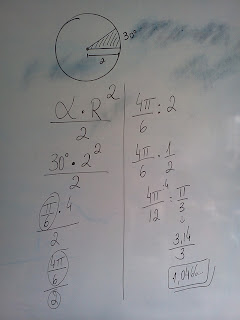 30°
2
α · R²
2
30° · 2²
2
π/6 · 4
2
4π/6
2
4π/6 : 2
4π/6 · 1/2
4π/12 = π/3
3,14
3